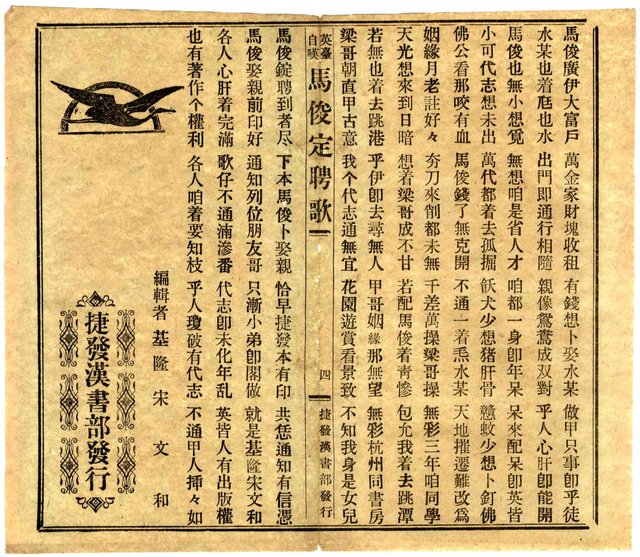 馬俊廣伊大富戶 萬金家財塊收租 有錢想卜娶水某 做甲只事卽乎徒
水某也着尪也水 出門即通行相隨 親像鴛鴦成双對 乎人心肝卽能開
馬俊也無小想寬 無想咱是省人才 咱都一身卽年呆 呆來配呆卽英皆
小可代志想未出 萬代都着去孤掘 妖犬少想猪肝骨 戇蚊少想卜釘佛
佛公看那咬有血 馬俊錢了無克開 不通一着焏水某 天地摧遷難改爲
姻緣月老註好々 夯刀來創都未無 千差萬操梁哥操 無彩三年咱同學
天光想來到日暗 想着梁哥成不甘 若配馬俊着靑慘 包允我着去跳潭
若無也着去跳港 乎伊卽去尋無人 甲哥姻緣那無望 無彩杭州同書房
梁哥朝直甲古意 我个代志通無宜 花園遊賞看景致 不知我身是女兒
英臺自嘆 馬俊定聘歌 四 捷發漢書部發行
馬俊錠聘到者尽 下本馬俊卜娶親 恰早捷發本有印 共恁通知有信憑
馬俊娶親前印好 通知列位朋友哥 只漸小弟卽閣做 就是基隆宋文和
各人心肝着完滿 歌仔不通滴滲番 代志卽未化年乱 英皆人有出版權
也有著作个權利 各人咱着要知枝 乎人瓊破有代志 不通甲人挿々如
編輯者 基隆 宋文和
捷發漢書部發行